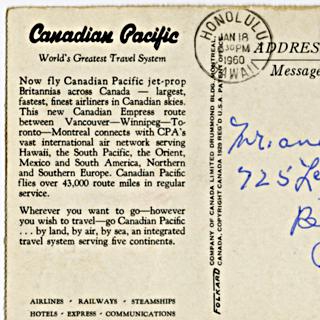 Canadian Pacific
World's Greatest Travel System
Now fly Canadian Pacific jet-prop
Britannias across Canada — largest,
fastest, finest airliners in Canadian skies.
This new Canadian Empress route
between Vancouver—Winnipeg—To-
ronto—Montreal connects with CPA's
vast international air network serving
Hawaii, the South Pacific, the Orient,
Mexico and South America, Northern
and Southern Europe. Canadian Pacific
flies over 43,000 route miles in regular
service.
Wherever you want to go—however
you wish to travel—go Canadian Pacific
... by land, by air, by sea, an integrated
travel system serving five continents.
AIRLINES · RAILWAYS · STEAMSHIPS
HOTELS · EXPRESS · COMMUNICATIONS
HONOLULU
JAN 18
30PM
1960
HAWAII
ADDRES
Message
FOLKARD COMPANY OF CANADA LIMITED DRUMMOND BLDG. MONTREAL,
CANADA, COPYRIGHT CANADA 1929 REG'D U.S.A. PATENT OFFICE
725